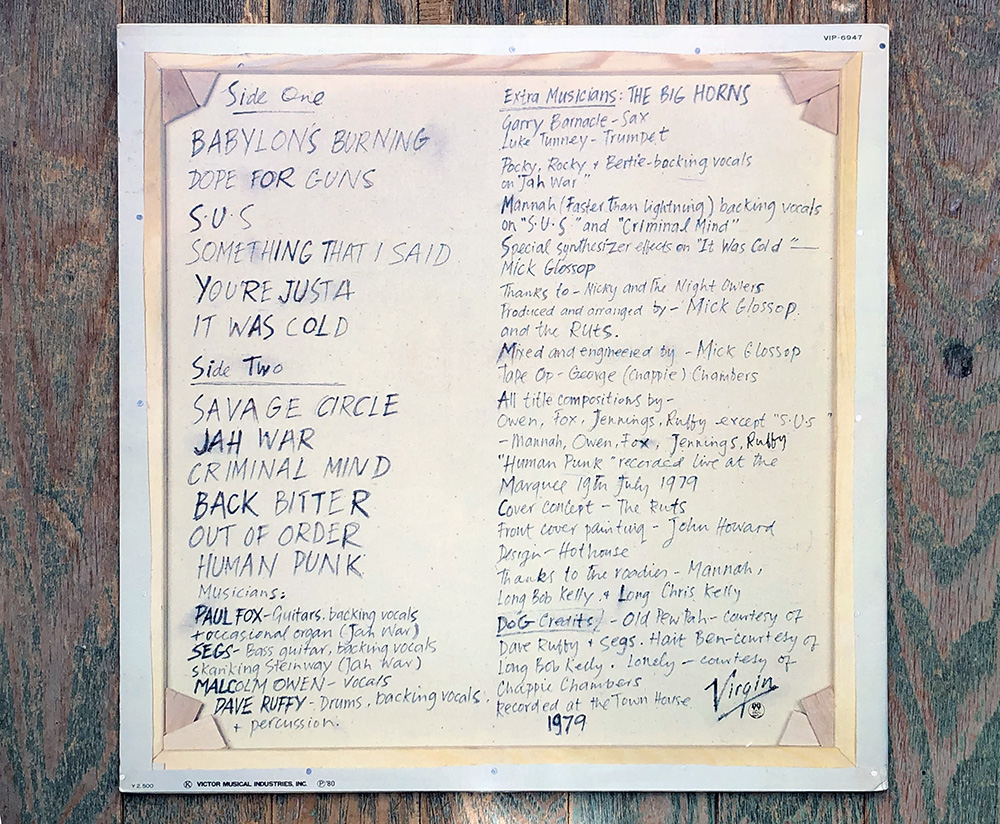 VIP-6947
Side One
BABYLON'S BURNING
DOPE FOR GUNS
S·U·S
SOMETHING THAT I SAID
YOU'RE JUST A
IT WAS COLD
Side Two
SAVAGE CIRCLE
JAH WAR
CRIMINAL MIND
BACK BITTER
OUT OF ORDER
HUMAN PUNK
Musicians:
PAUL FOX - Guitars, backing vocals
+ occasional organ (Jah War)
SEGS - Bass guitar, backing vocals
skanking Steinway (Jah War)
MALCOLM OWEN - Vocals
DAVE RUFFY - Drums, backing vocals.
+ percussion.
Extra Musicians: THE BIG HORNS
Garry Barnacle - Sax
Luke Tunney - Trumpet
Pocky, Rocky + Bertie - backing vocals
on "Jah War"
Mannah (Faster than lightning) backing vocals
on "S·U·S" and "Criminal Mind"
Special synthesizer effects on "It Was Cold" —
Mick Glossop
Thanks to - Nicky and The Night Owlers
Produced and arranged by - Mick Glossop.
and the Ruts.
Mixed and engineered by - Mick Glossop
Tape Op - George (Chappie) Chambers
All title compositions by -
Owen, Fox, Jennings, Ruffy except "S·U·S"
- Mannah, Owen, Fox, Jennings, Ruffy
"Human Punk" recorded live at the
Marquee 19th July 1979
Cover concept - The Ruts
Front cover painting - John Howard
Design - Hothouse
Thanks to the roadies - Mannah,
Long Bob Kelly, + Long Chris Kelly
DoG Credits - Old Pew Pah - courtesy of
Dave Ruffy + Segs. Hait Ben - courtesy of
Long Bob Kelly. Lonely - courtesy of
Chappie Chambers
Recorded at the Town House
1979
Virgin
¥2,500
Ⓚ VICTOR MUSICAL INDUSTRIES, INC. Ⓟ'80